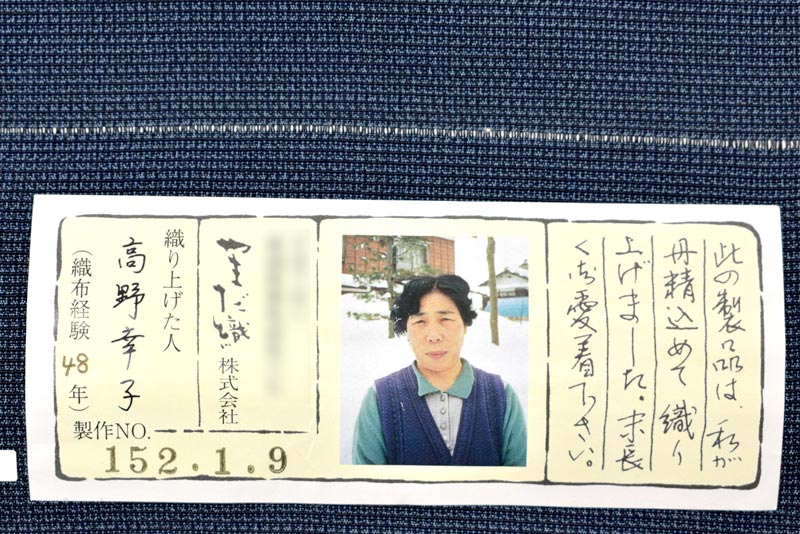 此の製品は、私が
丹精込めて織り
上げました。末長
くご愛着下さい。
やまだ織株式会社
織り上げた人
高野幸子
(織布経験48年)
製作NO.
152.1.9